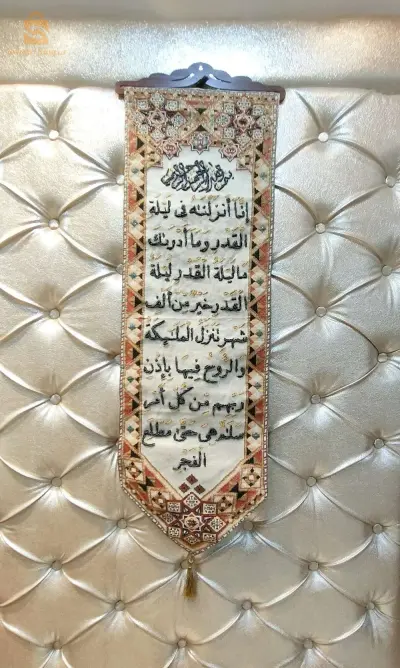 بسم الله الرحمن الرحيم
إنا أنزلنه في ليلة
القدر وما أدرىك
ما ليلة القدر ليلة
القدر خير من ألف
شهر تنزل الملىكة
والروح فيها بإذن
ربهم من كل أمر
سلم هي حتى مطلع
الفجر